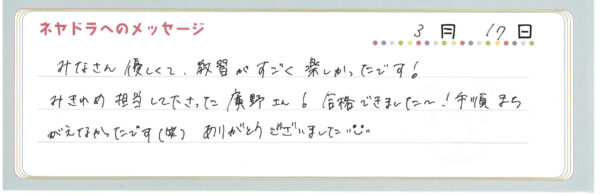 ネヤドラへのメッセージ 3月 17日
みなさん優しくて、教習がすごく楽しかったです!
みきわめ担当して下さった廣野さん!合格できました〜!手順まち
がえなかったです(笑) ありがとうございました